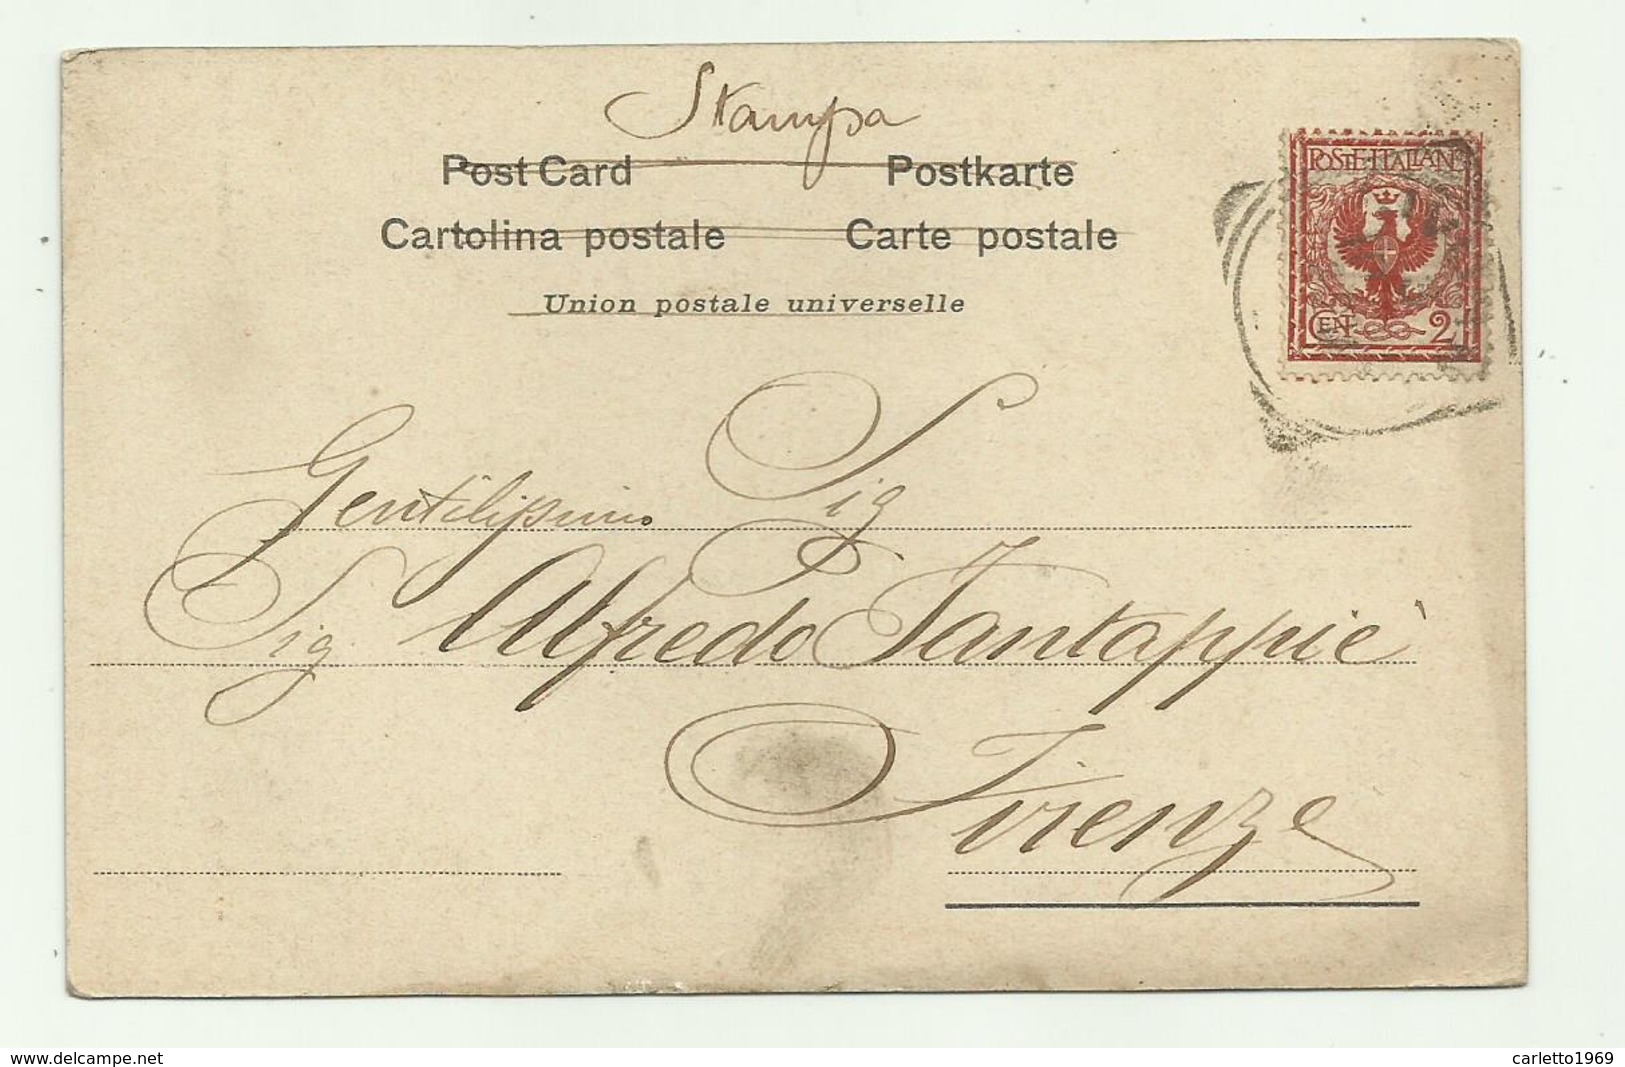 Stampa
Post Card Postkarte
Cartolina postale Carte postale
Union postale universelle
POSTE·ITALIANE
CEN 2
Sig
Gentilissimo
Sig. Alfredo Fantappiè
Firenze
www.delcampe.net carletto1969